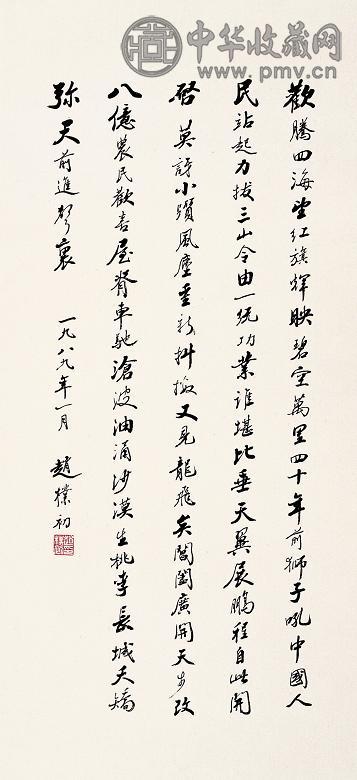 中华收藏网
www.pmv.cn
歡騰四海望紅旗輝映碧空萬里四十年前獅子吼中國人
民站起力拔三山令由一統功業誰堪比垂天翼展鵬程自此開
啓莫訝小躓風塵重新抖擻又見龍飛矣閶闔廣開天步改
八億農民歡喜屋脊車馳滄波油涌沙漠生桃李長城夭矯
弥天前進聲裏 一九八九年一月 趙樸初